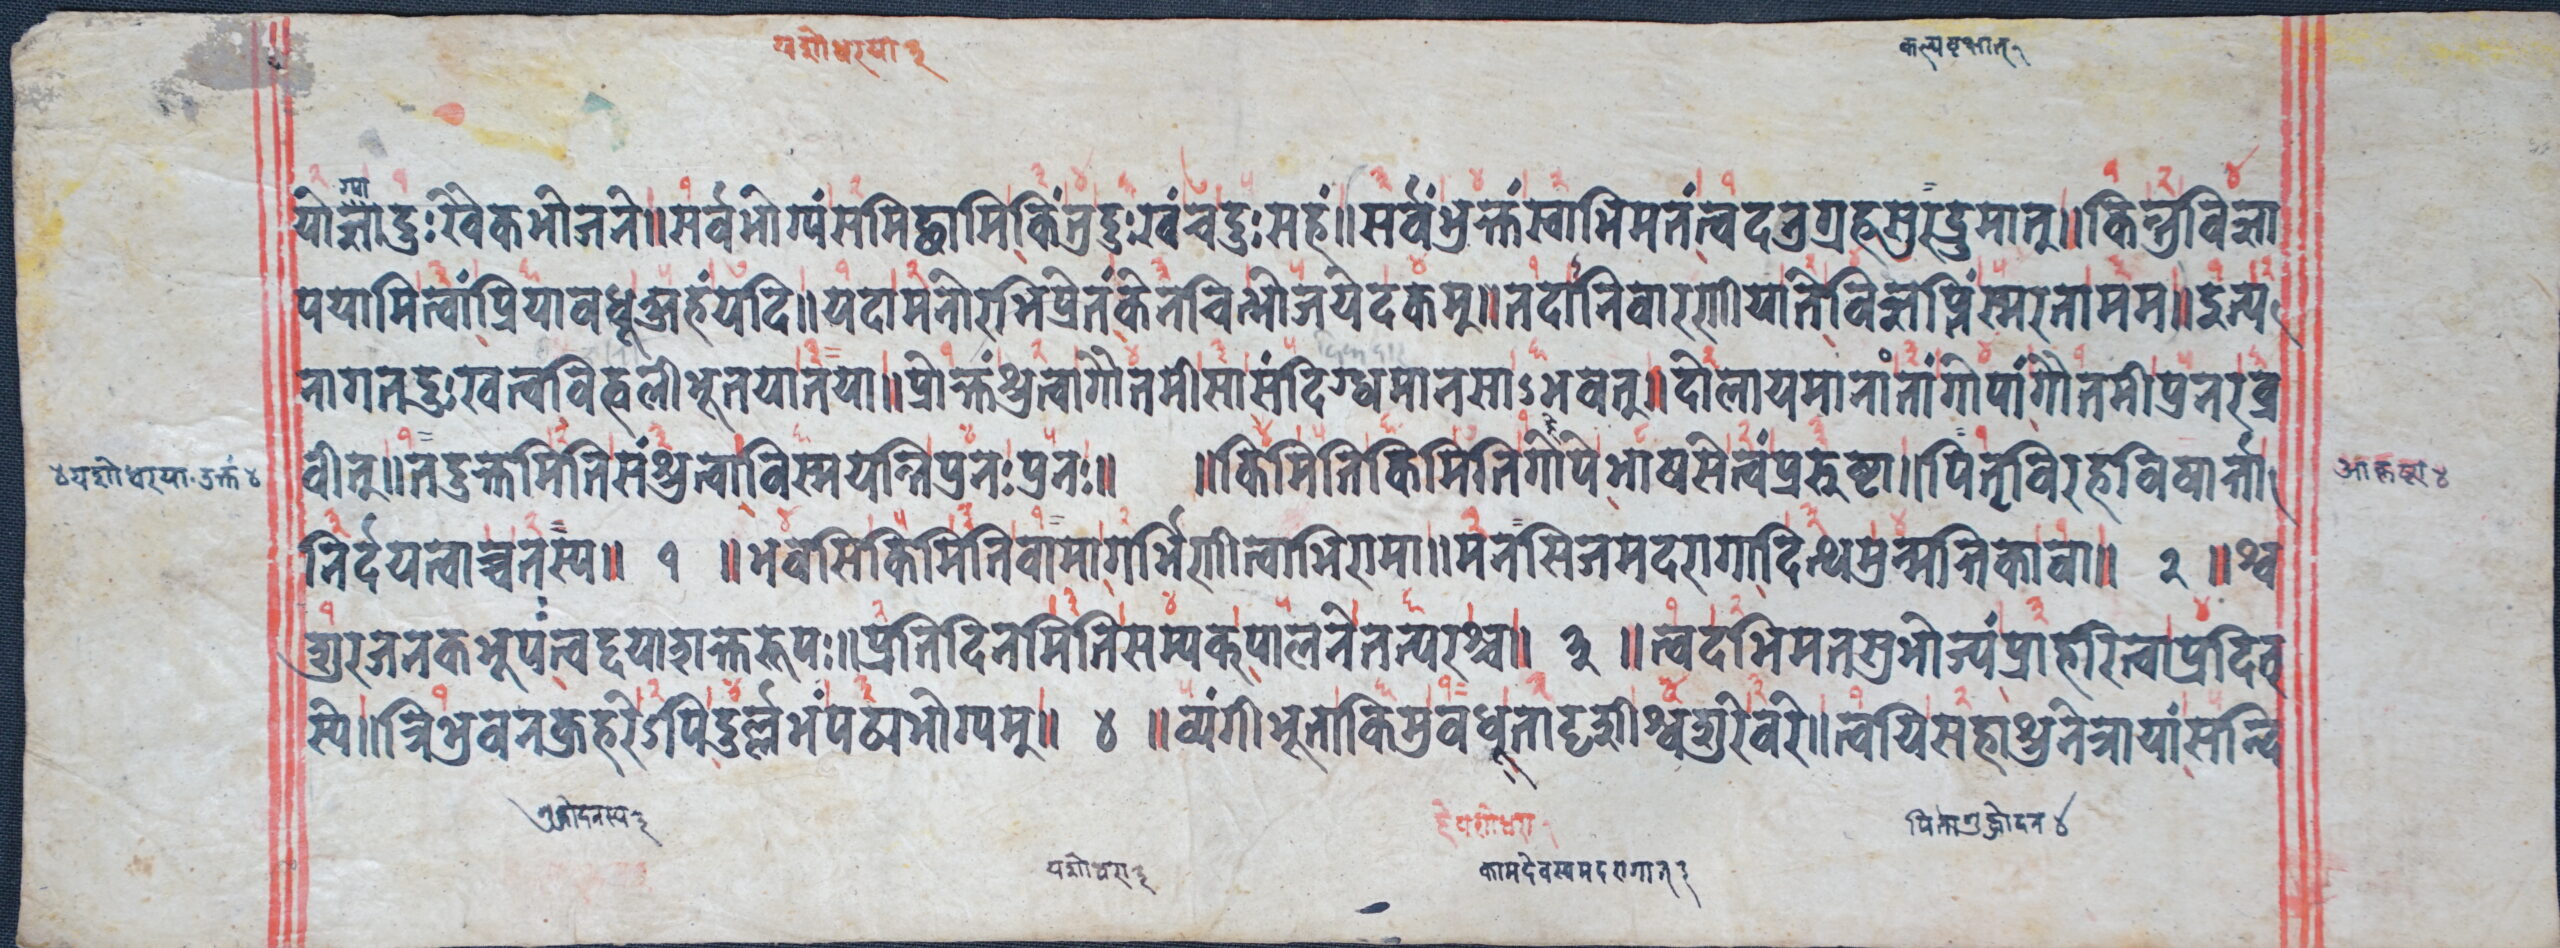 यशोधरया ३
कल्पवृक्षात् १
योज्ञादुःखैकभोजने॥सर्वभोग्यंसमिद्धामिकिंनुदुःखंचदुःसहं॥सर्वंभुक्तंस्वाभिमतंत्वदनुग्रहसुरद्रुमात्॥किन्तुविज्ञा
पयामित्वांप्रियावधूअहंयदि॥यदामनोरभिप्रेतंकेनचिन्भोजयेदकम्॥तदानिवारणीयातेविज्ञप्तिंस्मरतामम॥इत्य
नागतदुःखत्वविह्वलीभूतयातया॥प्रोक्तंश्रुत्वागौतमीसासंदिग्धमानसाऽभवत्॥दोलायमानांतांगोपांगौतमीपुनरब्र
वीत्॥तदुक्तमितिसंश्रुत्वाविस्मयन्तिपुनःपुनः॥ ॥किमितिकिमितिगोपेभाषसेत्वंप्ररुष्टा॥पितृविरहविषार्त्ता
४यशोधरया उक्तं४
निर्दयत्वाच्चतस्य॥ १ ॥भवसिकिमितिवामागर्भिणीत्वाभिरामा॥मनसिजमदरागादित्थमुन्मत्तिकावा॥ २ ॥श्व
शुरजनकभूपंत्वद्दयाशक्तरूपः॥प्रतिदिनमितिसम्यक्पालनेतत्परश्च॥ ३ ॥त्वदभिमतसुभोज्यंप्राहरित्वाप्रदित्
स्ये॥त्रिभुवनकुहरेऽपिदुर्ल्लभंपथ्यभोग्यम्॥ ४ ॥व्यंगीभूताकिमुवधूतादृशीश्वशुरेवरे॥त्वयिसहाश्रुनेत्रायांसन्दि
शुद्धोदनस्य ३
हेयशोधरा १
पिताशुद्धोदन ४
यशोधरा ३
कामदेवस्यमदरागात् ३